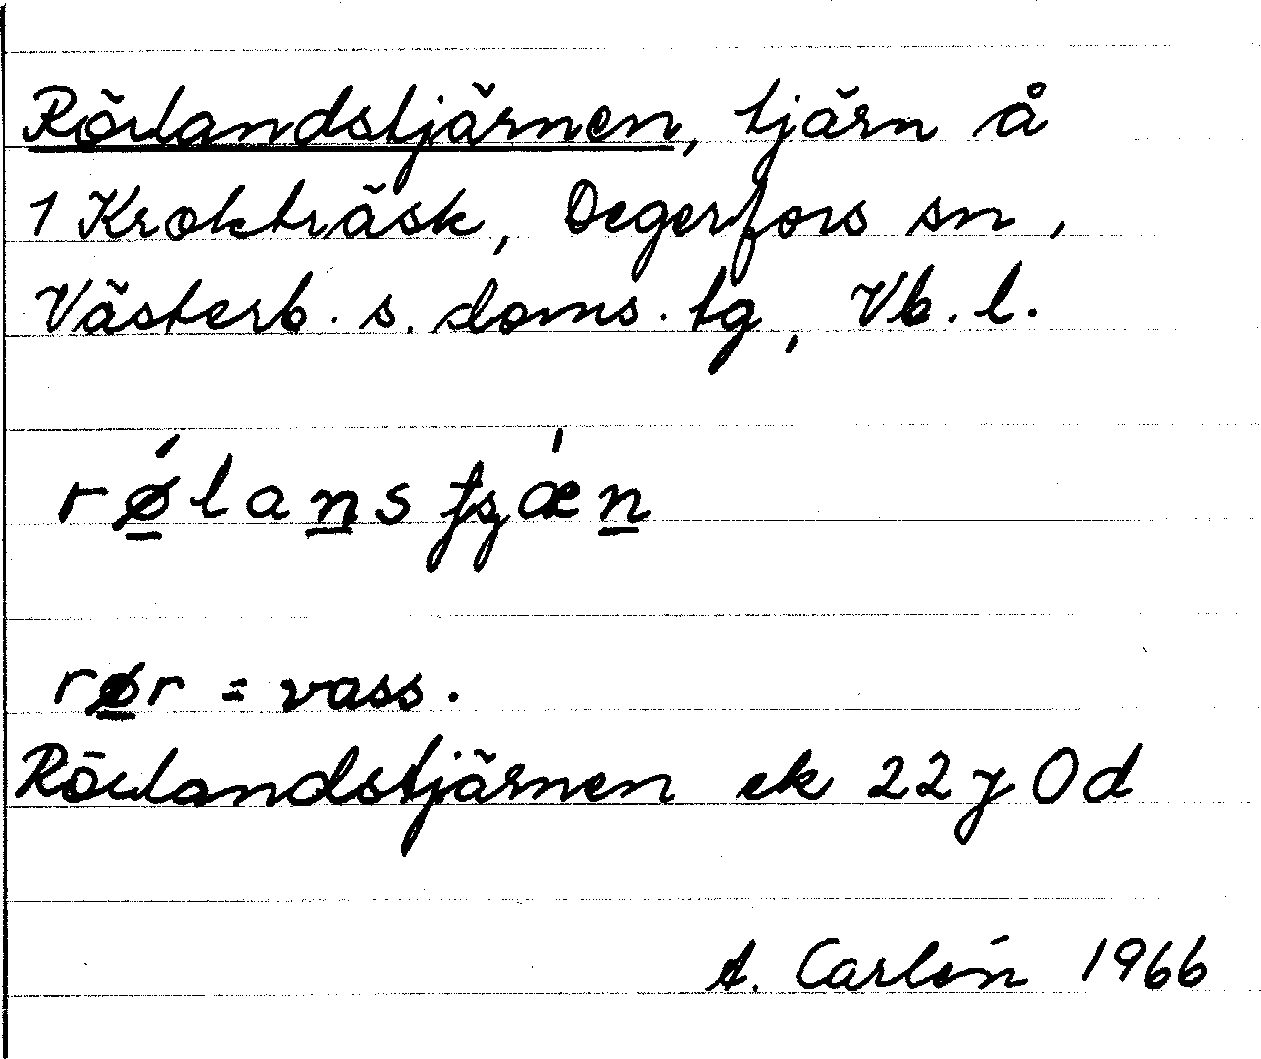 Rörlandstjärnen, tjärn å
1 Krokträsk, Degerfors sn,
Västerb. s. doms. tg, Vb. l.
rǿlans tjæ̍n
rør = vass.
Rörlandstjärnen ek 22 J 0 d
A. Carlén 1966